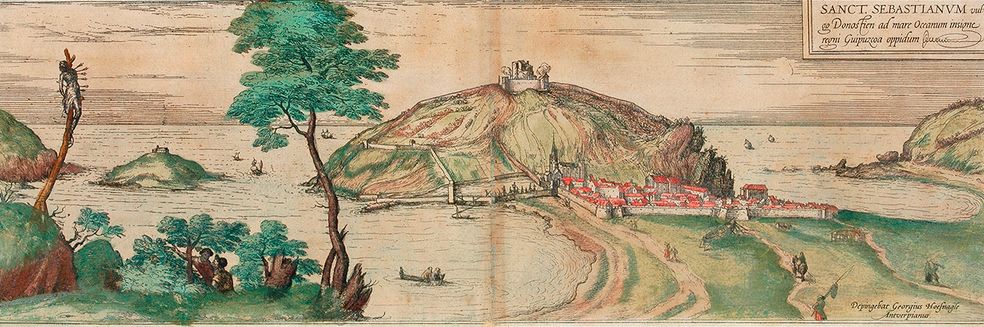 SANCT. SEBASTIANVM vul-
go Donostien ad mare Oceanum insigne
regni Guipuzcoa oppidum
Depingebat Georgius Hoefnagle
Antverpianus